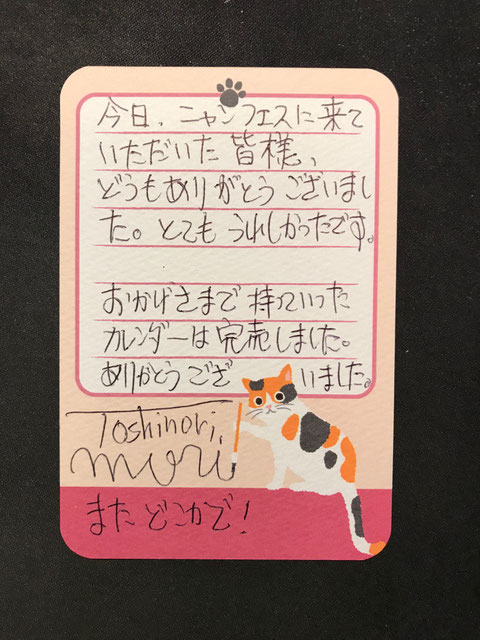 今日、ニャンフェスに来て
いただいた皆様、
どうもありがとうございまし
た。とてもうれしかったです。
おかげさまで持っていった
カレンダーは完売しました。
ありがとうございました。
Toshinori
mori
またどこかで!